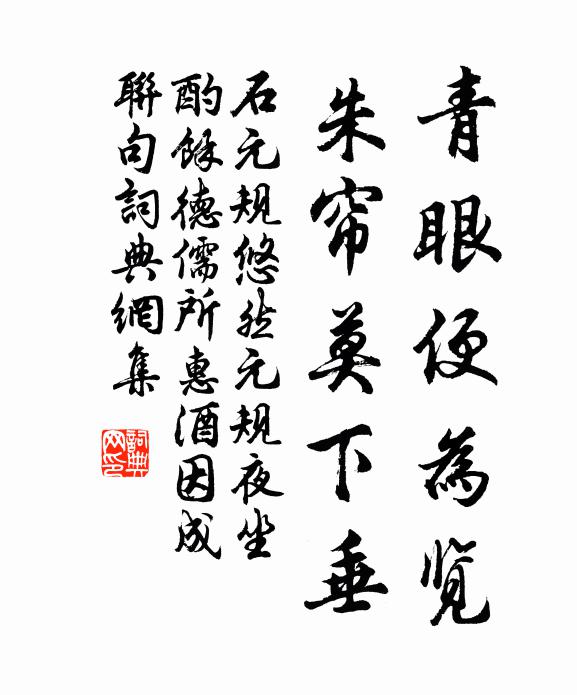 青眼便為览
朱帘莫下垂
石元规悠然元规夜坐
酌餘德儒所惠酒因成
聯句詞典網集
詞典网印